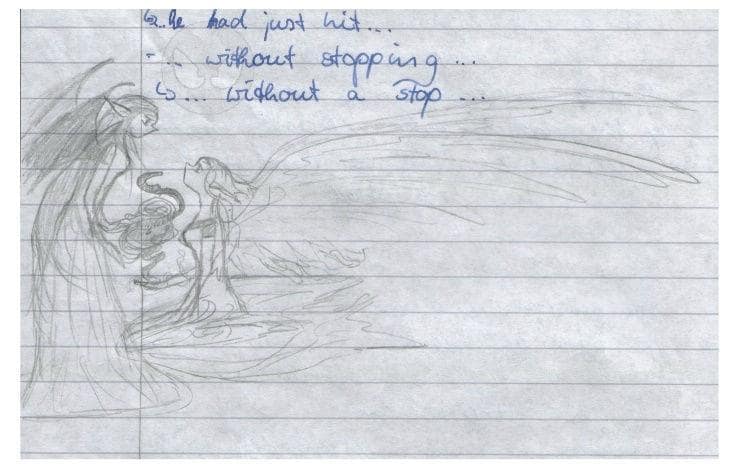 ↳...he had just hit...
-... without stopping...
↳... without a stop ...